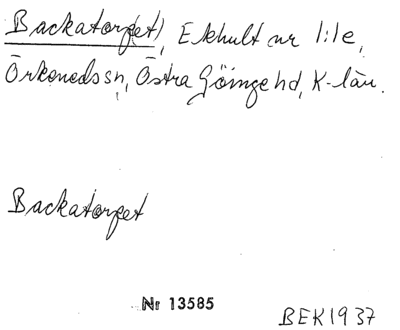 Backatorpet), Ekhult nr 1:1e,
Örkeneds sn, Östra Göinge hd, K-län.
Backatorpet
Nr 13585
BEK 1937